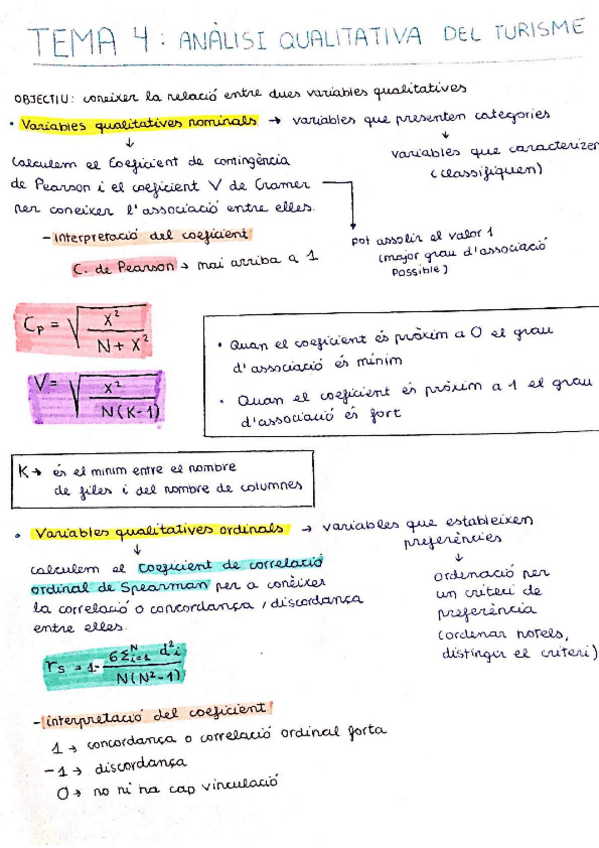 TEMA 4: ANÀLISI QUALITATIVA DEL TURISME
OBJECTIU: coneixer la relació entre dues variables qualitatives
• Variables qualitatives nominals → variables que presenten categories
↓
variables que caracteritzen
(classifiquen)
↓
Calculem el Coeficient de contingència
de Pearson i el coeficient V de Cramer
per coneixer l'associació entre elles.
pot assolir el valor 1
(major grau d'associació
possible)
- interpretació del coeficient
C. de Pearson → mai arriba a 1
Cp = √(X² / (N + X²))
V = √(X² / (N(K-1)))
• Quan el coeficient és pròxim a 0 el grau
d'associació és mínim
• Quan el coeficient és pròxim a 1 el grau
d'associació és fort
K → és el mínim entre el nombre
de files i del nombre de columnes
• Variables qualitatives ordinals → variables que estableixen
preferències
↓
ordenació per
un criteri de
preferència
(ordenar hotels,
distingir el criteri)
↓
calculem el coeficient de correlació
ordinal de Spearman per a conèixer
la correlació o concordança / discordança
entre elles.
rs = 1 - 6Σᴺi=1 d²i / N(N²-1)
- interpretació del coeficient
1 → concordança o correlació ordinal forta
-1 → discordança
0 → no hi ha cap vinculació